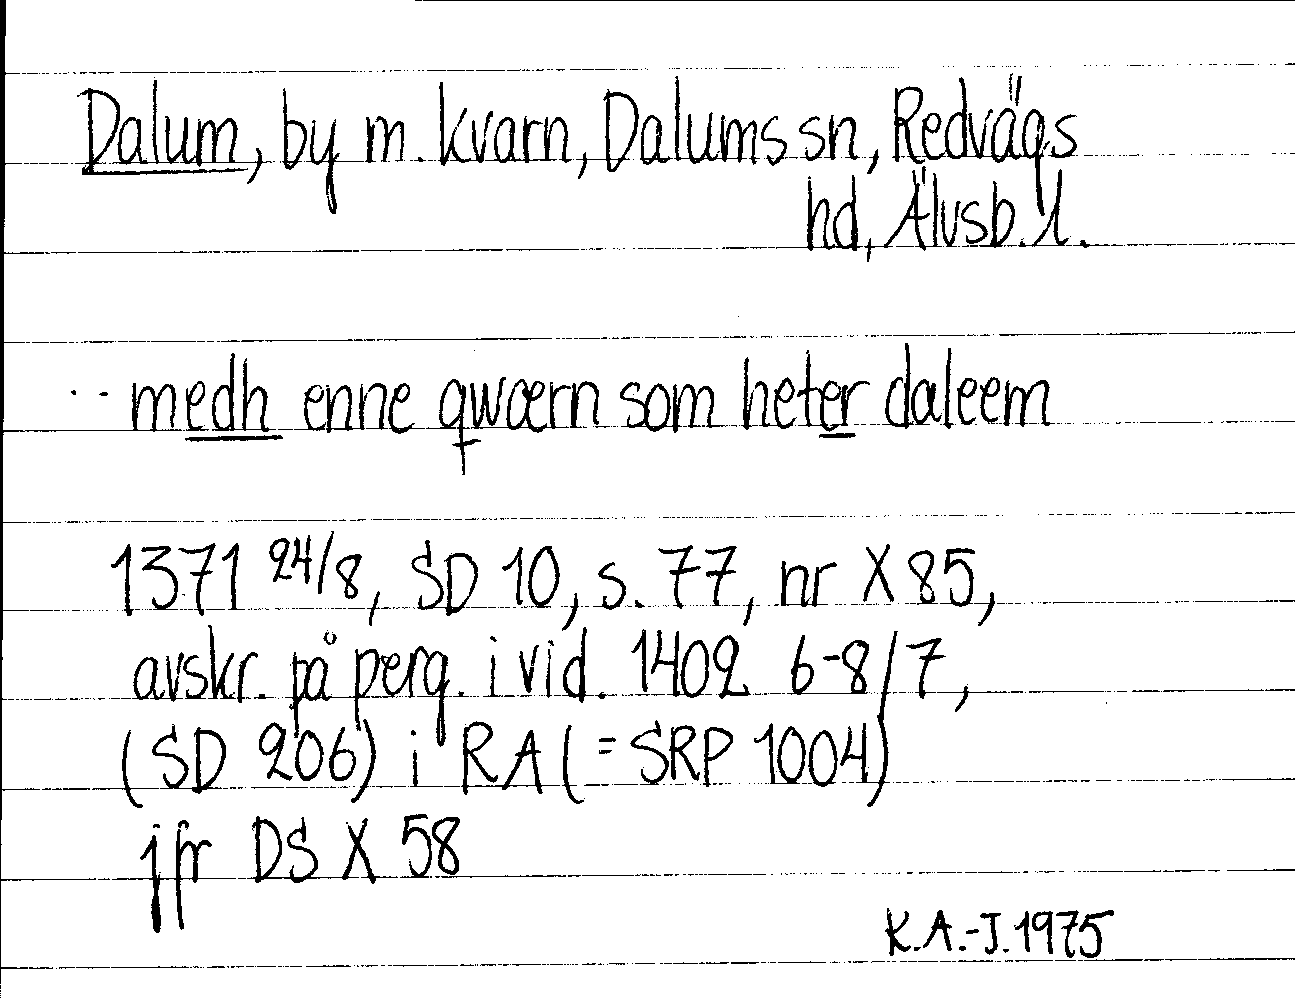 Dalum, by m. kvarn, Dalums sn, Redvägs
hd, Älvsb. l.
.. medh enne qwærn som heter daleem
1371 24/8, SD 10, s. 77, nr X 85,
avskr. på perg. i vid. 1402 6-8/7,
(SD 206) i RA (= SRP 1004)
jfr DS X 58
K.A.-J. 1975